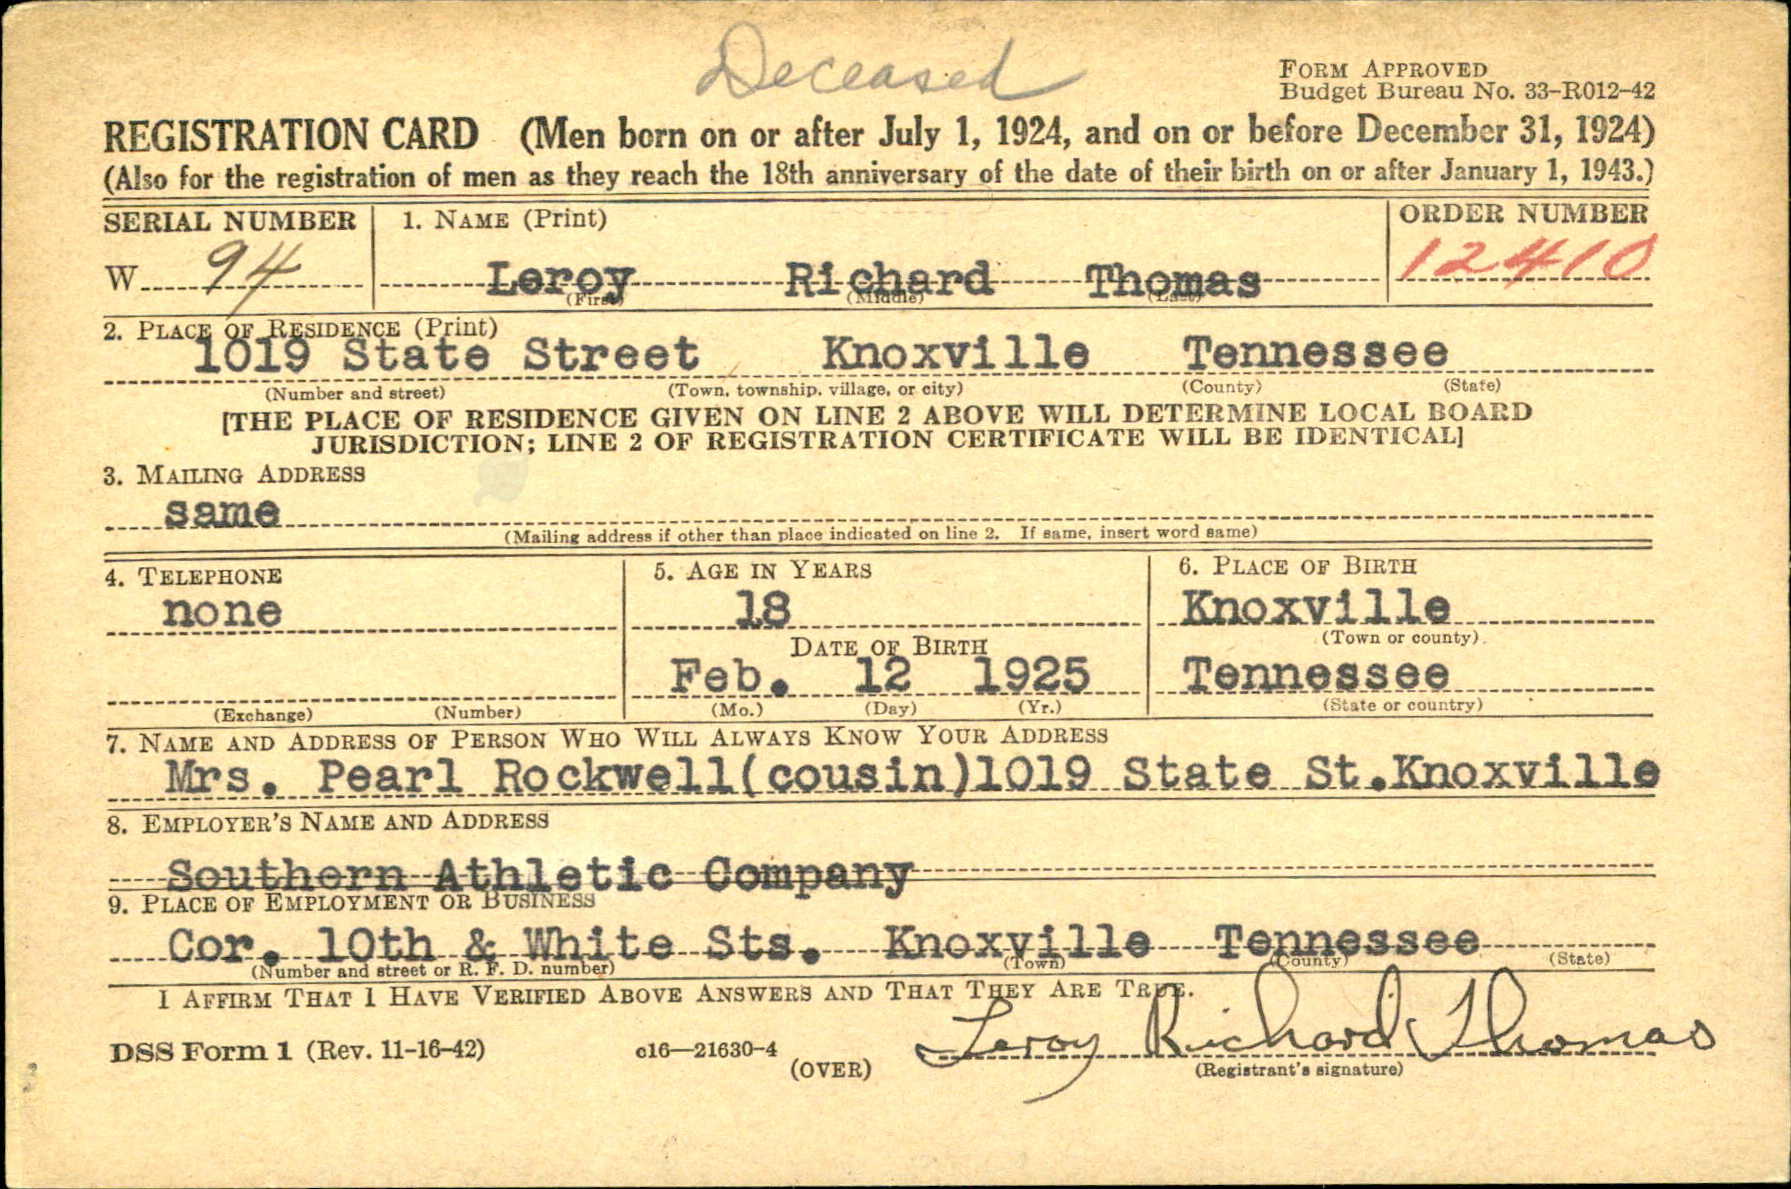 Deceased
FORM APPROVED
Budget Bureau No. 33-R012-42
REGISTRATION CARD (Men born on or after July 1, 1924, and on or before December 31, 1924)
(Also for the registration of men as they reach the 18th anniversary of the date of their birth on or after January 1, 1943.)
SERIAL NUMBER 1. NAME (Print) ORDER NUMBER
W 94 Leroy Richard Thomas 12410
(First) (Middle) (Last)
2. PLACE OF RESIDENCE (Print)
1019 State Street, Knoxville Tennessee
(Number and street) (Town, township, village, or city) (County) (State)
[THE PLACE OF RESIDENCE GIVEN ON LINE 2 ABOVE WILL DETERMINE LOCAL BOARD
JURISDICTION; LINE 2 OF REGISTRATION CERTIFICATE WILL BE IDENTICAL]
3. MAILING ADDRESS
same
(Mailing address if other than place indicated on line 2. If same, insert word same)
4. TELEPHONE 5. AGE IN YEARS 6. PLACE OF BIRTH
none 18 Knoxville
DATE OF BIRTH (Town or county)
Feb. 12 1925 Tennessee
(Exchange) (Number) (Mo.) (Day) (Yr.) (State or country)
7. NAME AND ADDRESS OF PERSON WHO WILL ALWAYS KNOW YOUR ADDRESS
Mrs. Pearl Rockwell(cousin)1019 State St.Knoxville
8. EMPLOYER'S NAME AND ADDRESS
Southern Athletic Company
9. PLACE OF EMPLOYMENT OR BUSINESS
Cor. 10th & White Sts. Knoxville Tennessee
(Number and street or R. F. D. number) (Town) (County) (State)
I AFFIRM THAT I HAVE VERIFIED ABOVE ANSWERS AND THAT THEY ARE TRUE.
Leroy Richard Thomas
DSS Form 1 (Rev. 11-16-42) c16—21630-4 (OVER) (Registrant's signature)